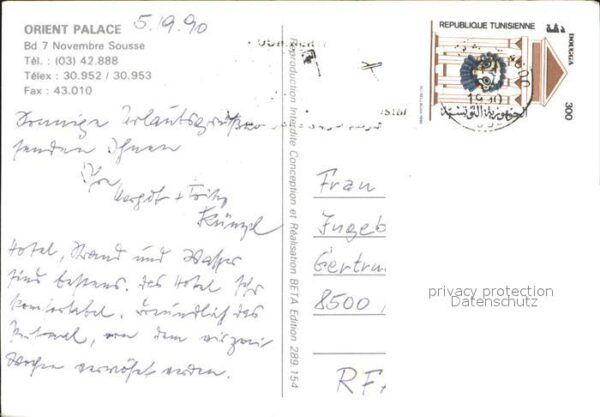 ORIENT PALACE
Bd 7 Novembre Sousse
Tél. : (03) 42.888
Télex : 30.952 / 30.953
Fax : 43.010
5.9.90
Sonnige Urlaubsgrüße
senden Ihnen
Ihre
Margot + Fritz
Künzel
Hotel, Strand und Wasser
sind bestens. Das Hotel sehr
komfortabel. Freundlich das
Personal, von dem wir zwei
Wochen verwöhnt werden.
Reproduction Interdite Conception et Réalisation BETA Edition 289 154
REPUBLIQUE TUNISIENNE
DOUGGA
300
الجمهورية التونسية
1990
Frau
Ingeb
Gertru
8500
RFA
privacy protection
Datenschutz